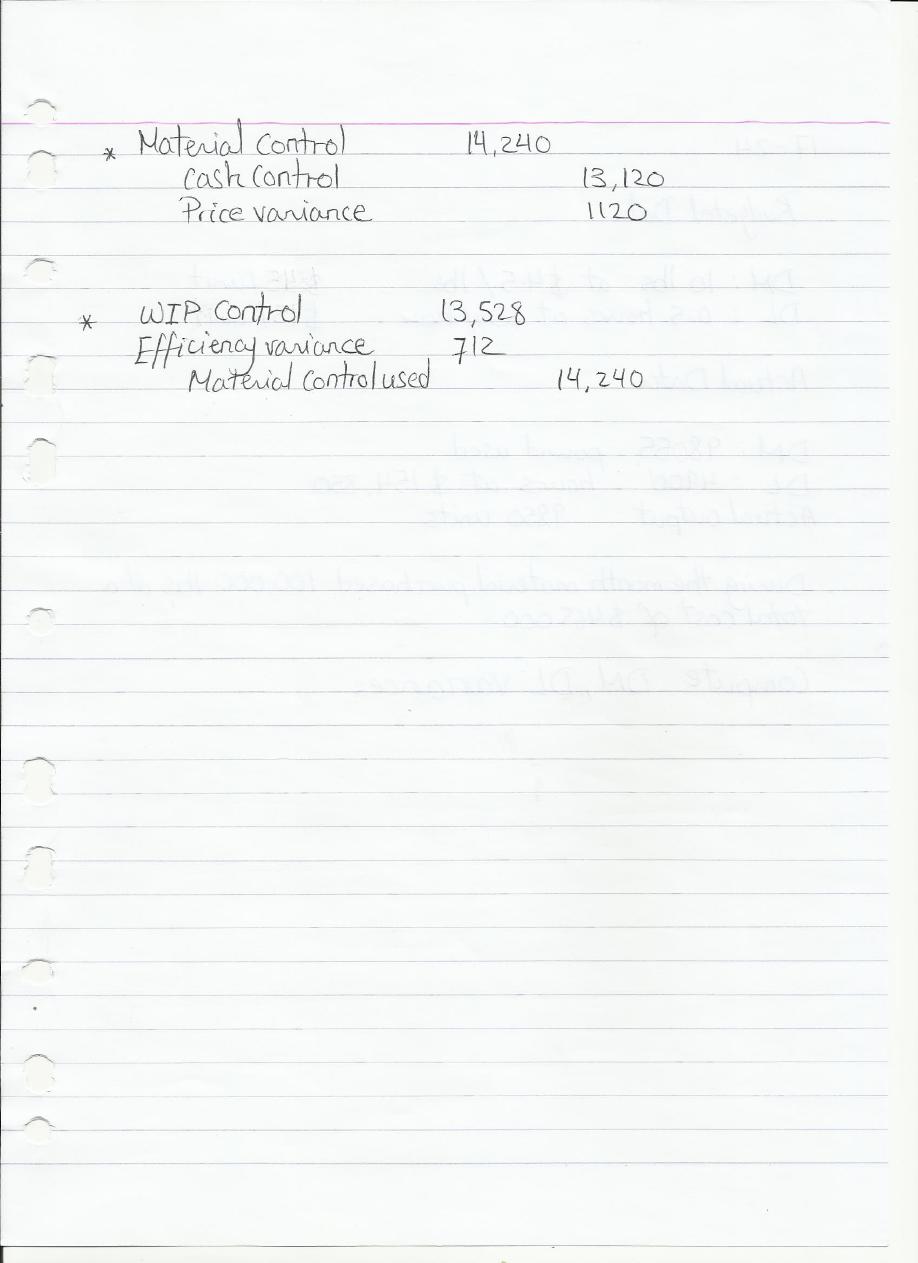 * Material Control 14,240
Cash Control 13,120
Price variance 1120
* WIP Control 13,528
Efficiency variance 712
Material Control used 14,240